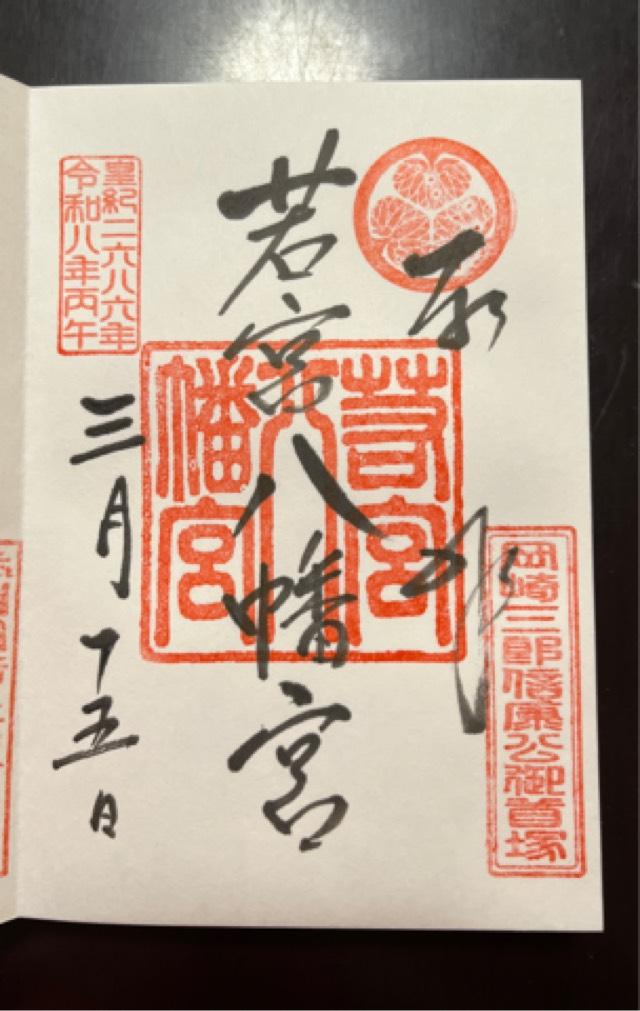 奉拝
岡崎三郎信康公御首塚
若宮八幡宮
若宮
八
幡宮
皇紀二六八六年
令和八年丙午
三月十五日